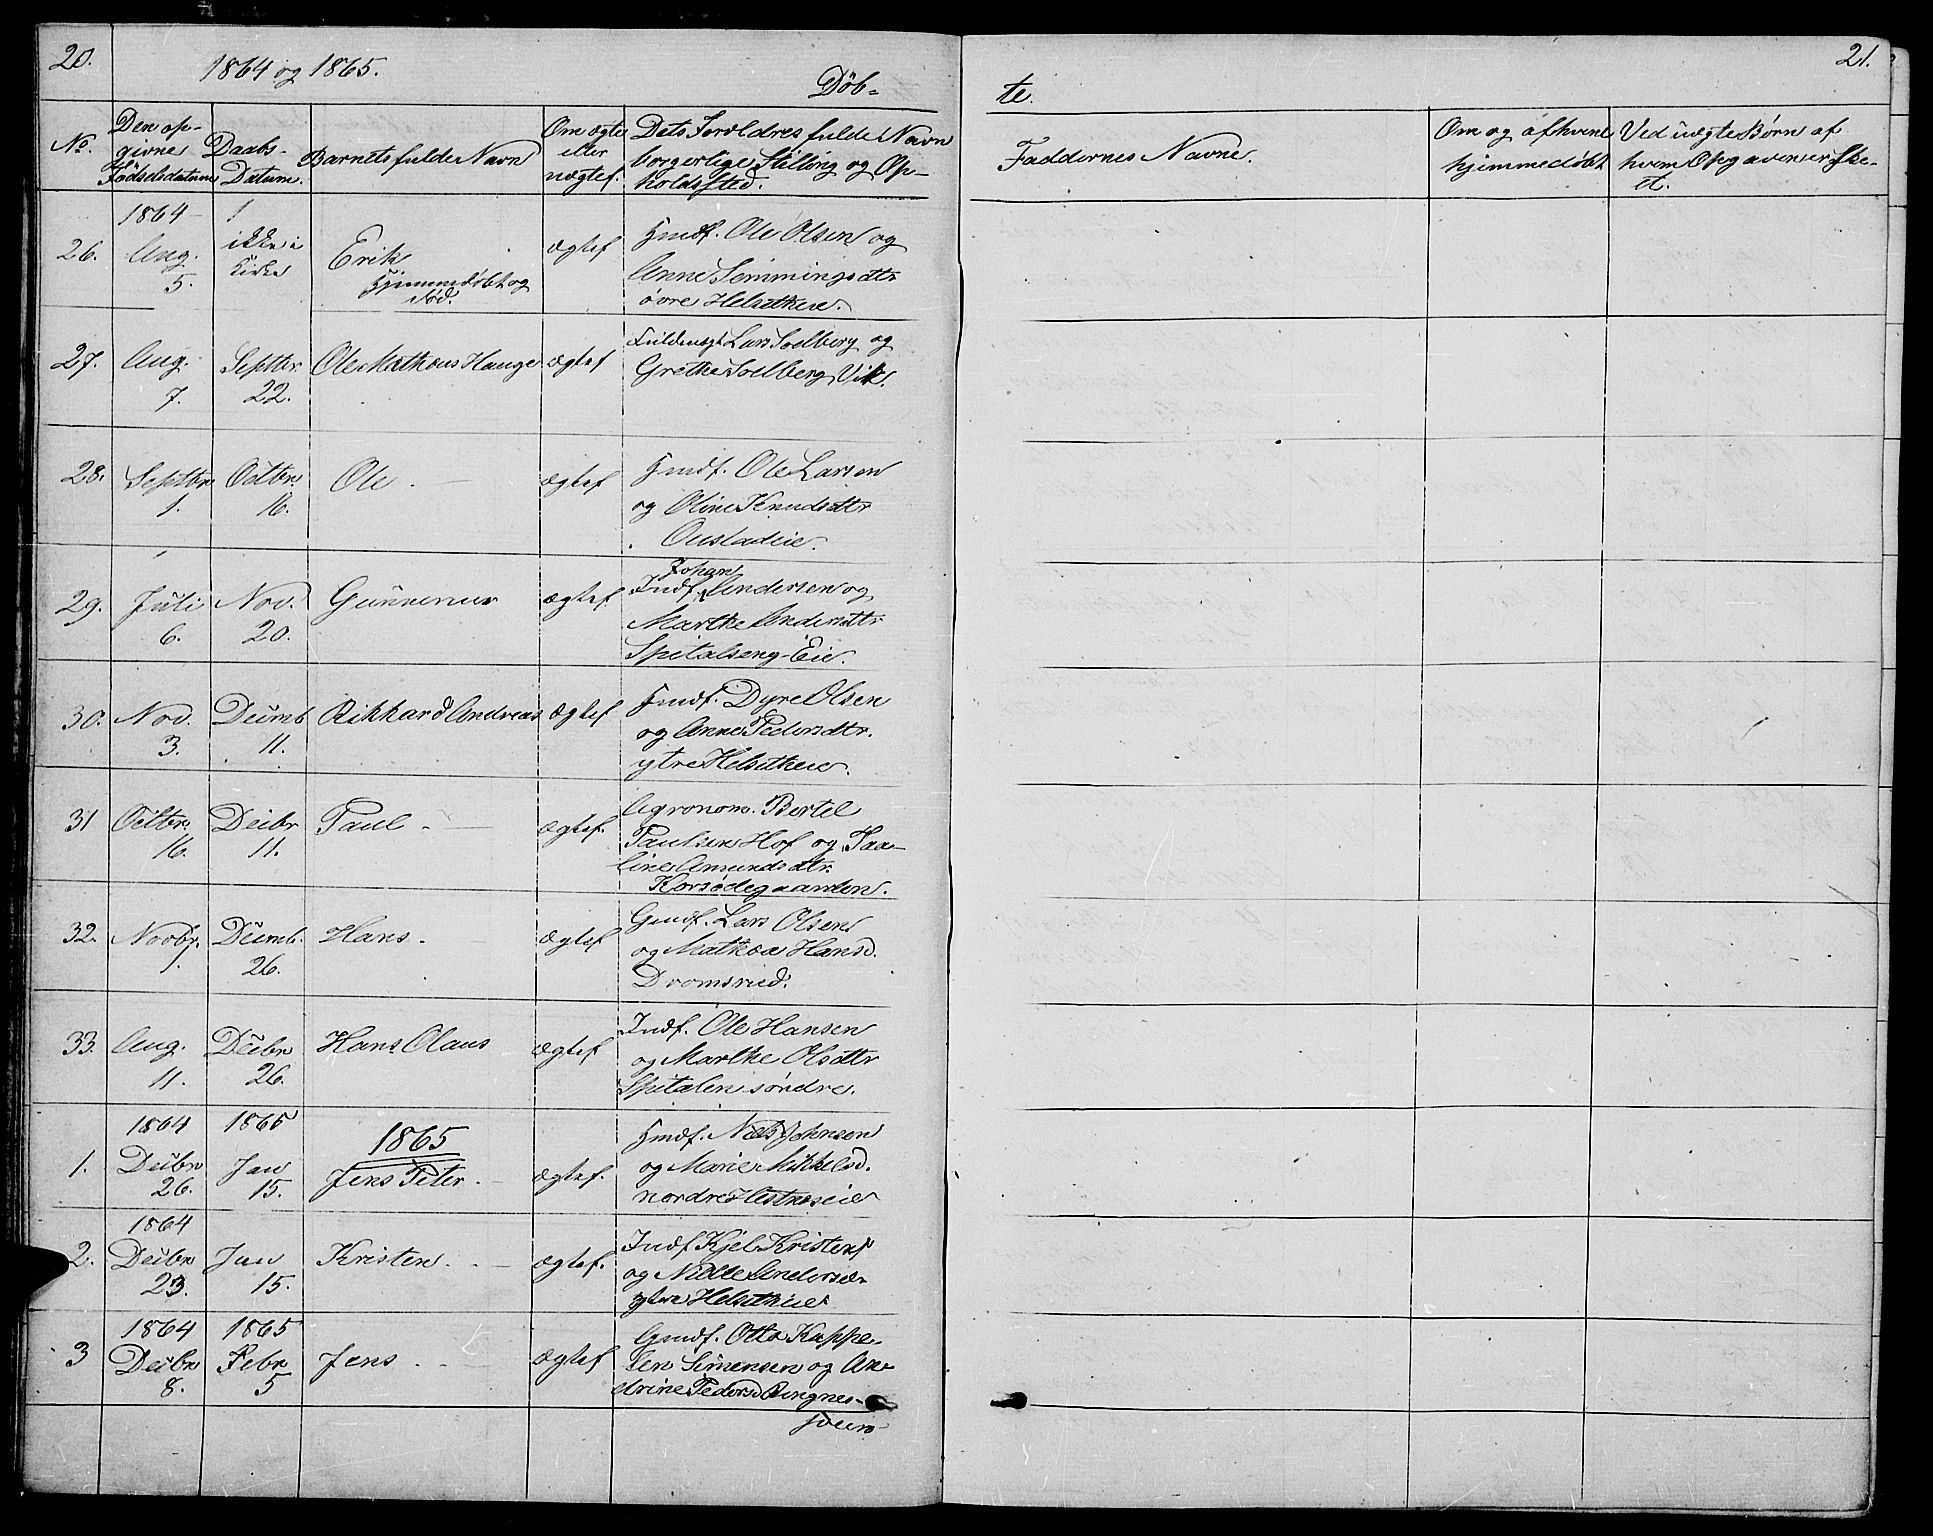 20.
1864 og 1865.
Döb-
te.
21.
No.
Den op-
givne
Födselsdatum
Daabs-
Datum.
Barnets fulde Navn
Om ægte
eller
uægte.
Dets Forældres fulde Navn
borgerlige Stilling og Op-
holdssted.
Faddernes Navne.
Om og af hvem
hjemmedøbt
Ved uægte Børn af
hvem Opgaven er ske-
et.
26.
1864
Aug.
5.
ikke i
Kirke
Erik
Hjemmedøbt og
død.
ægtef
Hmdf. Ole Olsen og
Anne Semmingsdtr
övre Helsetheie.
27.
Aug.
7.
Septbr
22.
Ole Mathæus Hauge
ægtef
Fuldmægt Lars Soelberg og
Grethe Soelberg Vik.
28.
Septbr
1.
Octbr
16.
Ole
ægtef
Hmdf. Ole Larsen
og Oline Knudsdtr
Oustadeie.
29.
Juli
6.
Nov.
20.
Gunnerius
ægtef
Johan
Indf. Andersen og
Marthe Andersdtr
Spitalseng-Eie.
30.
Nov.
3.
Decmb
11.
Rikhard Andreas
ægtef
Hmdf. Dyre Olsen
og Anne Pedersdtr.
ytre Helsetheie.
31
Octbr
16.
Decbr
11.
Paul
ægtef.
Agronom. Bertel
Paulsen Hof og Paa-
line Amundsdtr.
Korsødegaarden.
32.
Novbr.
1.
Decemb.
26.
Hans
ægtef
Gmdf. Lars Olsen
og Mathea Hansd.
Dromsrud.
33.
Aug.
11.
Decbr
26.
Hans Olaus
ægtef
Indf. Ole Hansen
og Marthe Olsdtr
Spitalen söndre.
1.
1864
Decbr
26.
1865
Jan
15.
1865
Jens Peter
ægtef.
Hmdf. Niels Johnsen
og Marie Mikkelsd.
nordre Hestnæseie
2.
1864
Decbr
23.
Jan
15.
Kristen
ægtef.
Indf Kjel Kristens
og Nielle Andersd.
ytre Helsetheie
3
1864
Decbr
8.
1865
Febr
5
Jens
ægtef
Gmdf. Otto Kappe-
len Simensen og An-
drine Pedersd Ringnes-